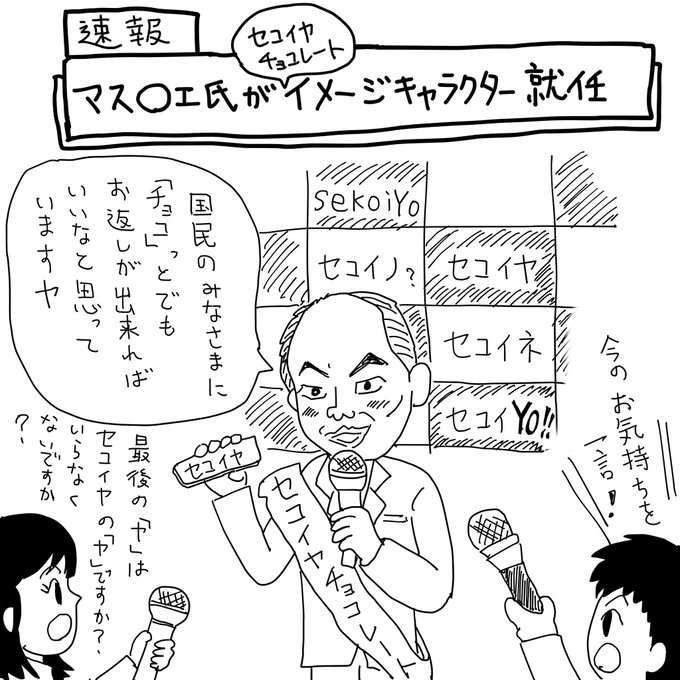 速報
セコイヤ
チョコレート
マス〇エ氏がイメージキャラクター就任
国民のみなさまに
「チョコ」っとでも
お返しが出来れば
いいなと思って
いますヤ
sekoiYo
セコイノ?
セコイヤ
セコイネ
セコイYo!!
今のお気持ちを
一言!
セコイヤ
セコイヤチョコレート
最後の「ヤ」は
セコイヤの「ヤ」ですか?
いらなく
ないですか
?